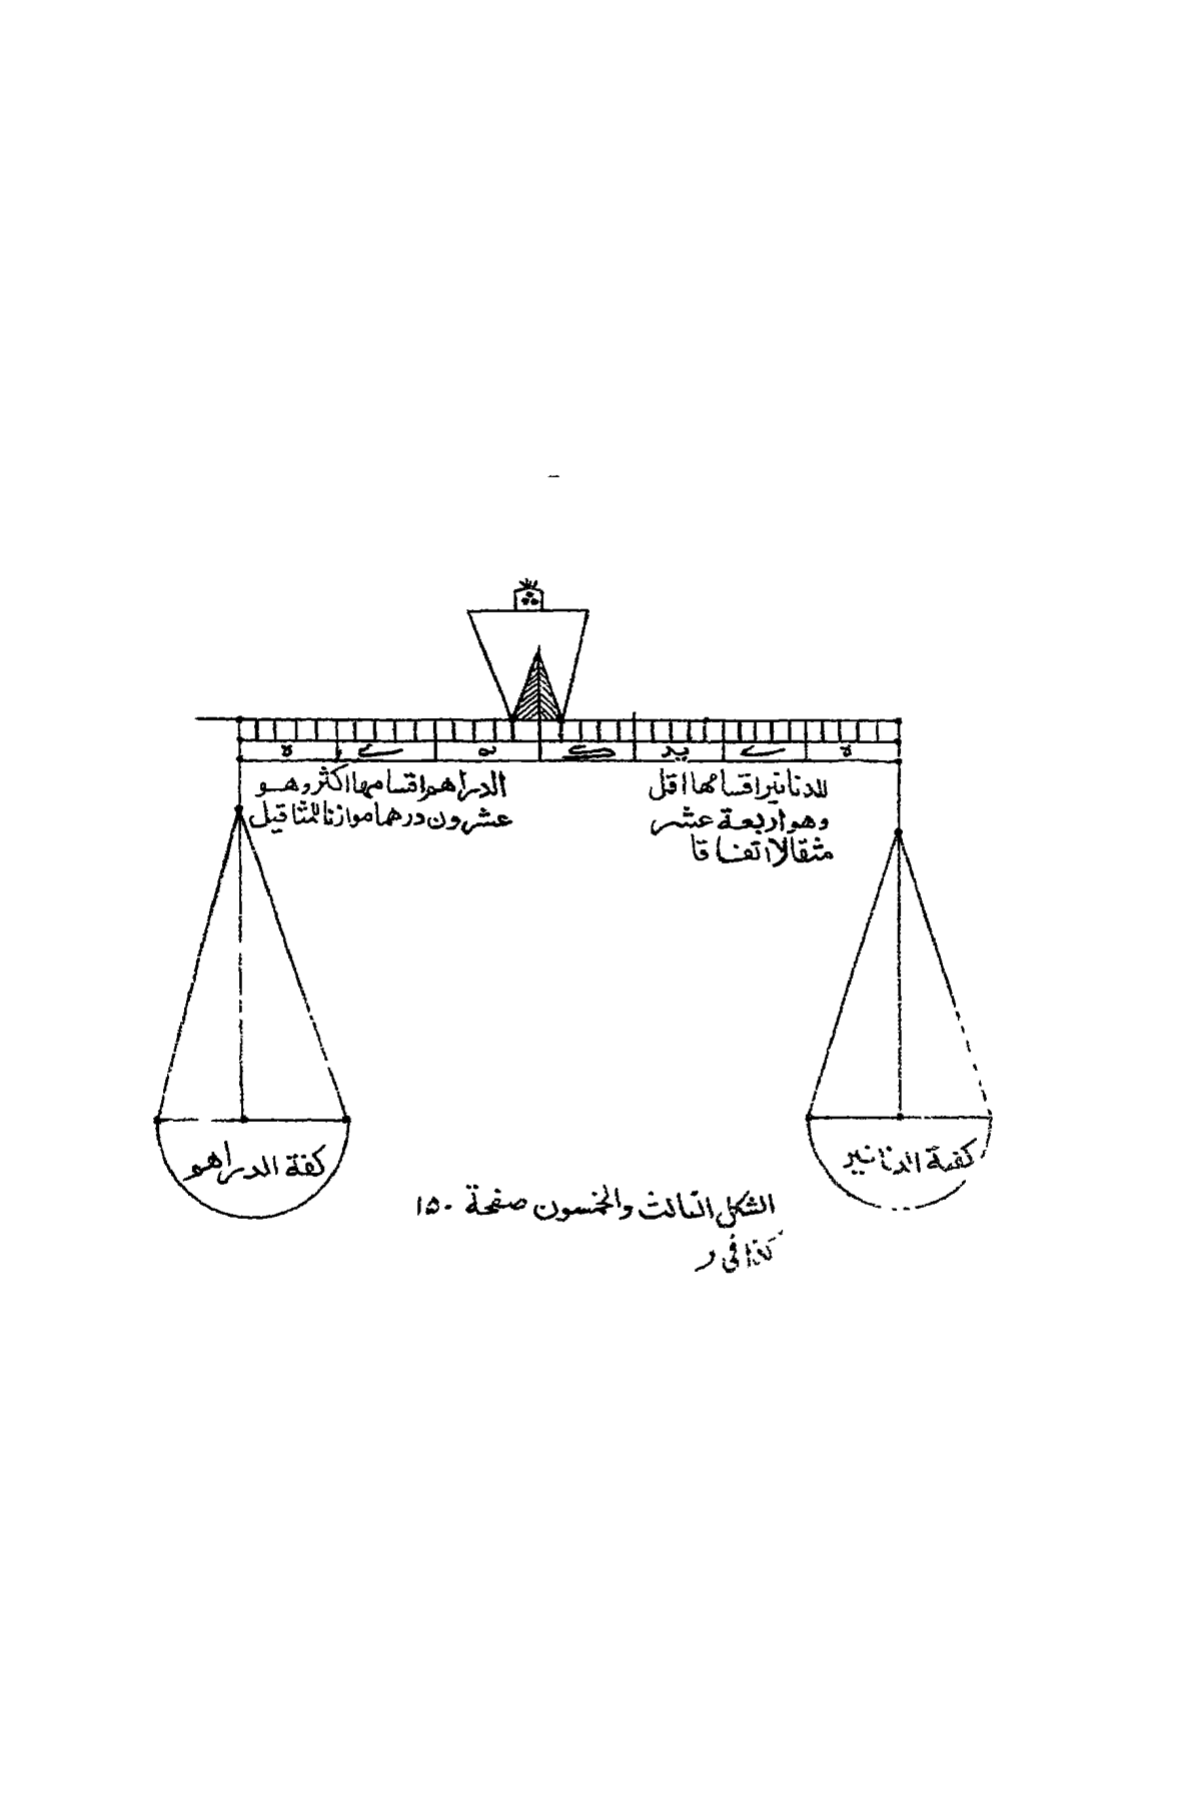 ة ے يه ک يد ے ة
الدراهم اقسامها اكثر وهو
عشرون درهما موازنا للمثاقيل
للدنانير اقسامها اقل
وهو اربعة عشر
مثقالا اتفاقا
كفة الدراهم
كفة الدنانير
الشكل الثالث والخمسون صفحة ١٥٠
كذا في ر